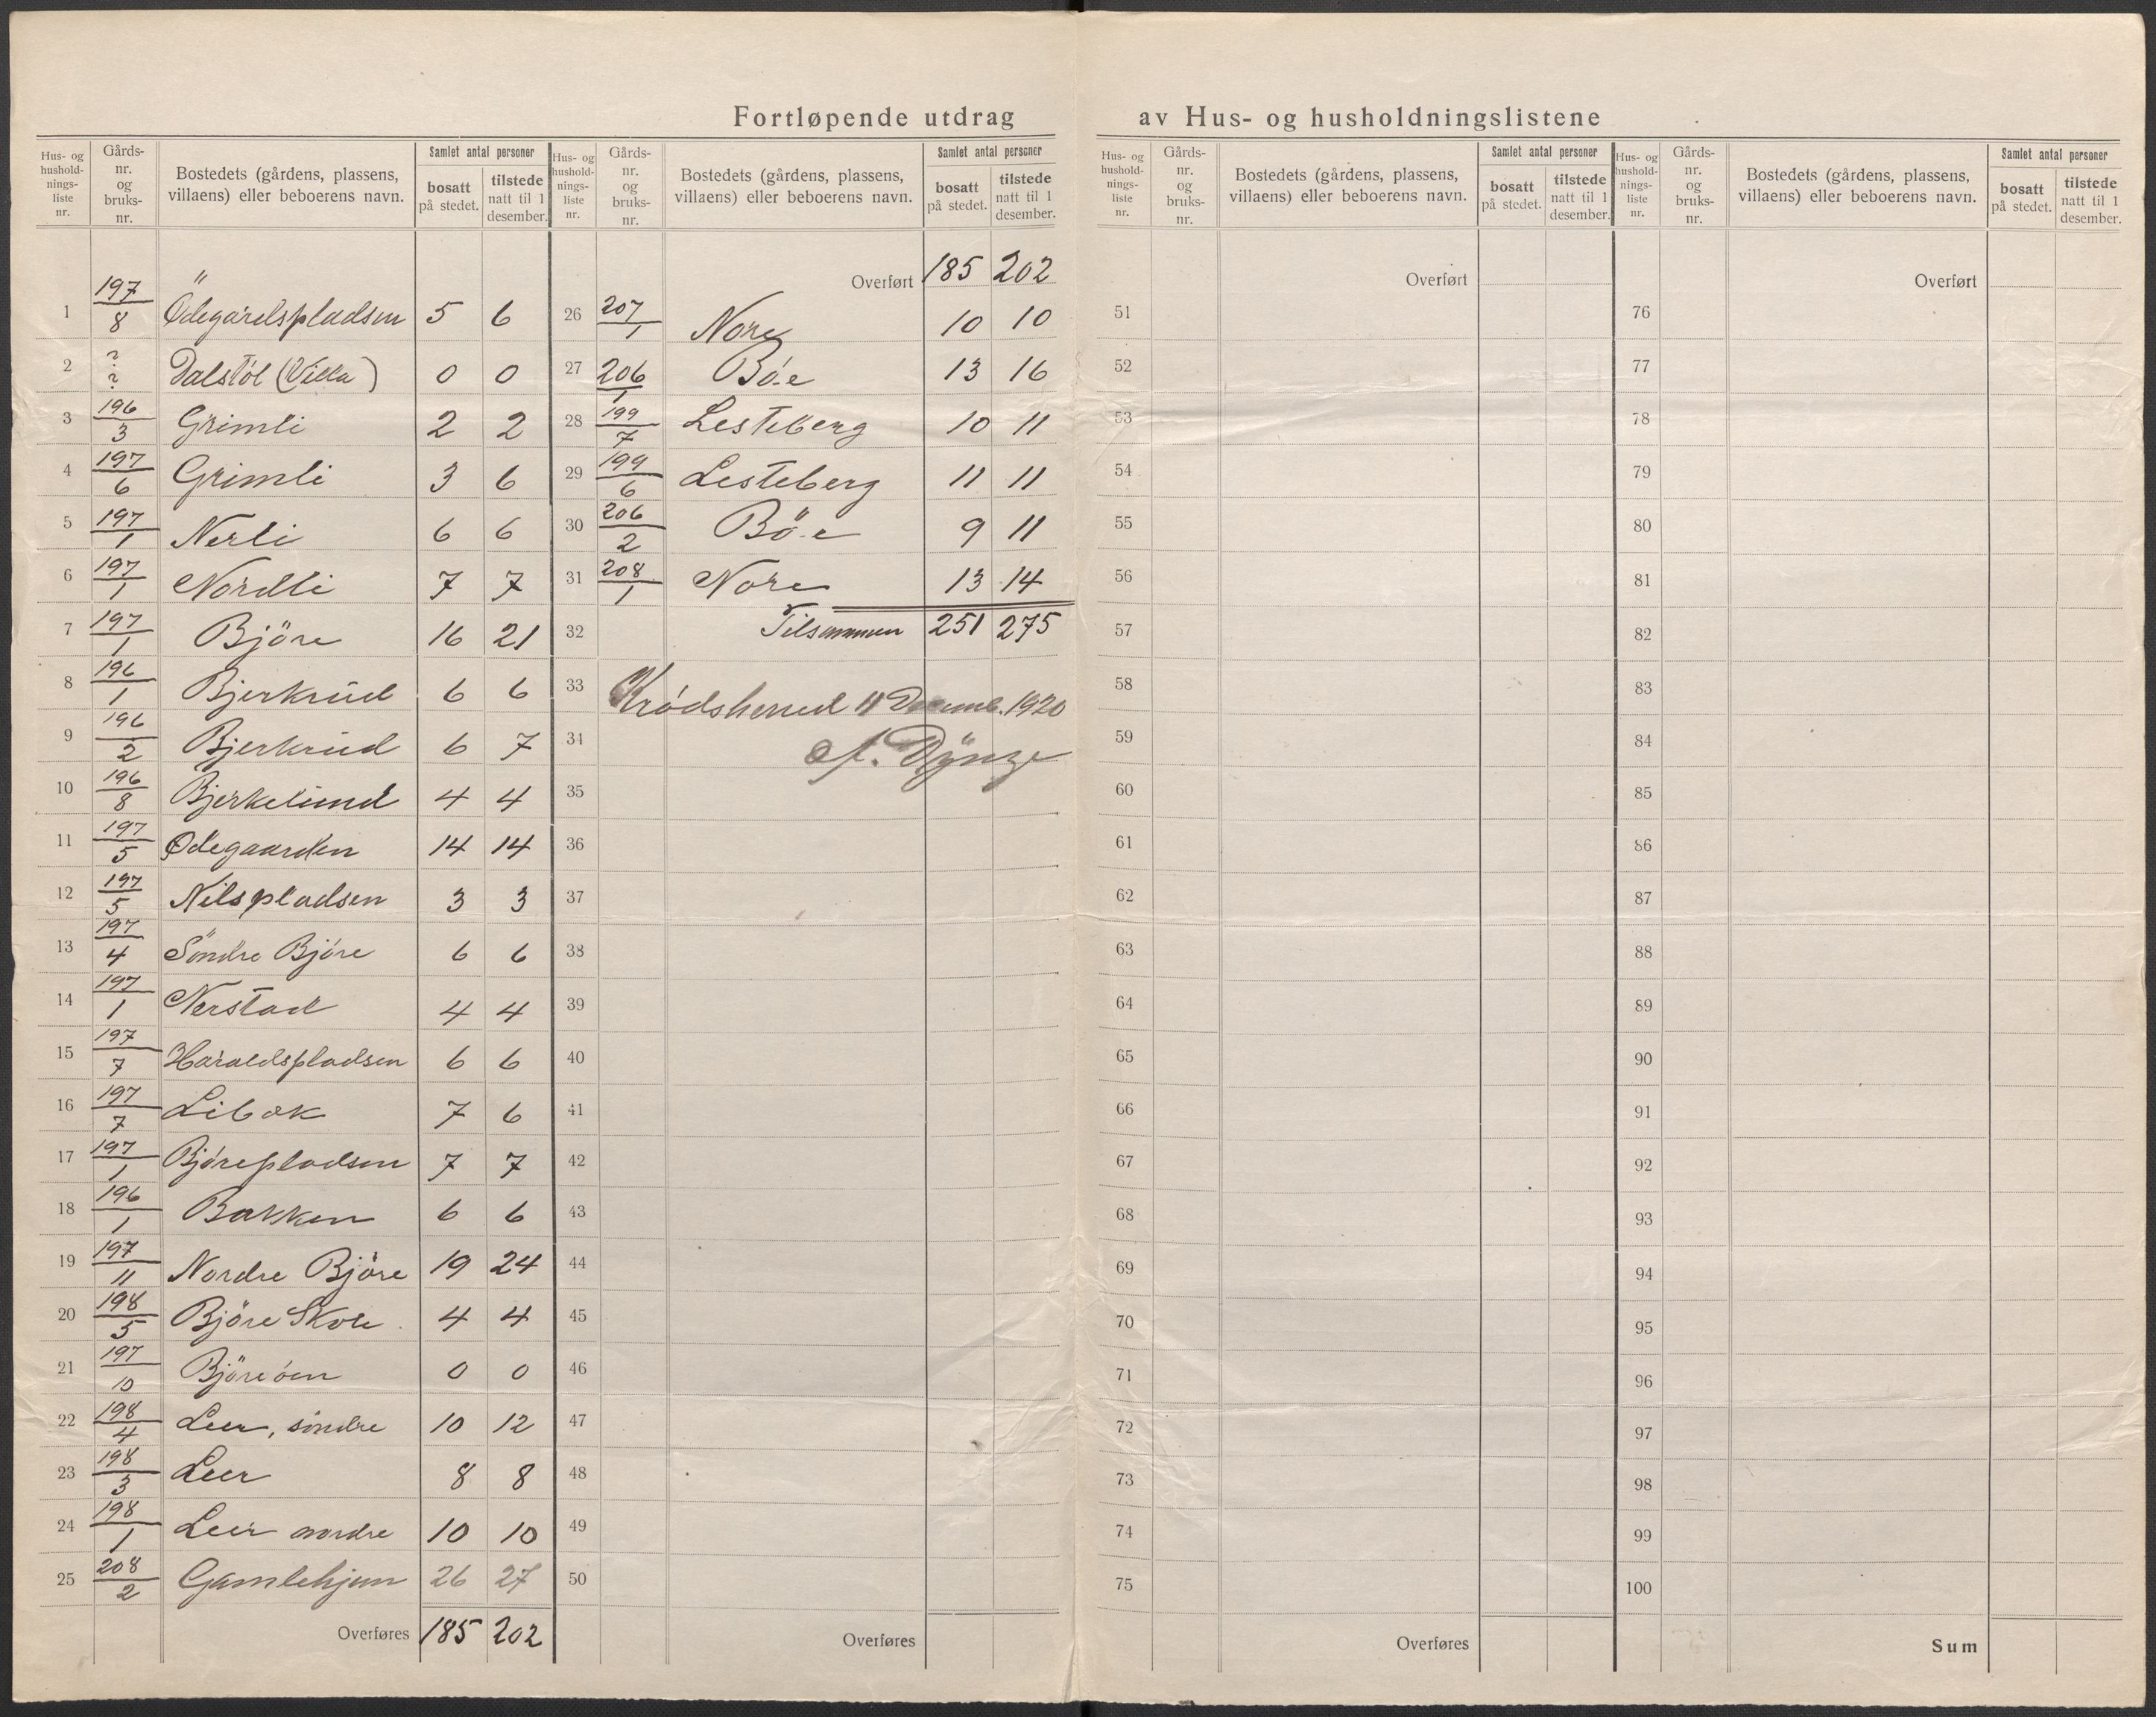 Fortløpende utdrag av Hus- og husholdningslistene
Hus- og hushold-nings-liste nr. | Gårds-nr. og bruks-nr. | Bostedets (gårdens, plassens, villaens) eller beboerens navn. | Samlet antal personer | bosatt på stedet. | tilstede natt til 1 desember.
1 197/8 Ödegårdspladsen 5 6
2 ?/? Dalstöl (Villa) 0 0
3 196/3 Grimli 2 2
4 197/6 Grimli 3 6
5 197/1 Nerli 6 6
6 197/1 Nordli 7 7
7 197/1 Björe 16 21
8 196/1 Bjerkrud 6 6
9 196/2 Bjerkrud 6 7
10 196/8 Bjerkelund 4 4
11 197/5 Ødegaarden 14 14
12 197/5 Nilspladsen 3 3
13 197/4 Söndre Björe 6 6
14 197/1 Nerstad 4 4
15 197/7 Haraldspladsen 6 6
16 197/7 Libæk 7 6
17 197/1 Bjørepladsen 7 7
18 196/1 Bakken 6 6
19 197/11 Nordre Björe 19 24
20 198/5 Björe Skole 4 4
21 197/10 Björeöen 0 0
22 198/4 Leer, søndre 10 12
23 198/3 Leer 8 8
24 198/1 Leer nordre 10 10
25 208/2 Gamlehjem 26 27
Overføres 185 202
Hus- og hushold-nings-liste nr. | Gårds-nr. og bruks-nr. | Bostedets (gårdens, plassens, villaens) eller beboerens navn. | Samlet antal personer | bosatt på stedet. | tilstede natt til 1 desember.
Overført 185 202
26 207/1 Nore 10 10
27 206/1 Böe 13 16
28 199/7 Lesteberg 10 11
29 199/6 Lesteberg 11 11
30 206/2 Böe 9 11
31 208/1 Nore 13 14
32 Tilsammen 251 275
33 Krødsherred 11 Decemb. 1920
31 A.
35
36
37
38
39
40
41
42
43
44
45
46
47
48
49
50
Overføres
Hus- og hushold-nings-liste nr. | Gårds-nr. og bruks-nr. | Bostedets (gårdens, plassens, villaens) eller beboerens navn. | Samlet antal personer | bosatt på stedet. | tilstede natt til 1 desember.
Overført
51
52
53
54
55
56
57
58
59
60
61
62
63
64
65
66
67
68
69
70
71
72
73
74
75
Overføres
Hus- og hushold-nings-liste nr. | Gårds-nr. og bruks-nr. | Bostedets (gårdens, plassens, villaens) eller beboerens navn. | Samlet antal personer | bosatt på stedet. | tilstede natt til 1 desember.
Overført
76
77
78
79
80
81
82
83
84
85
86
87
88
89
90
91
92
93
94
95
96
97
98
99
100
Sum